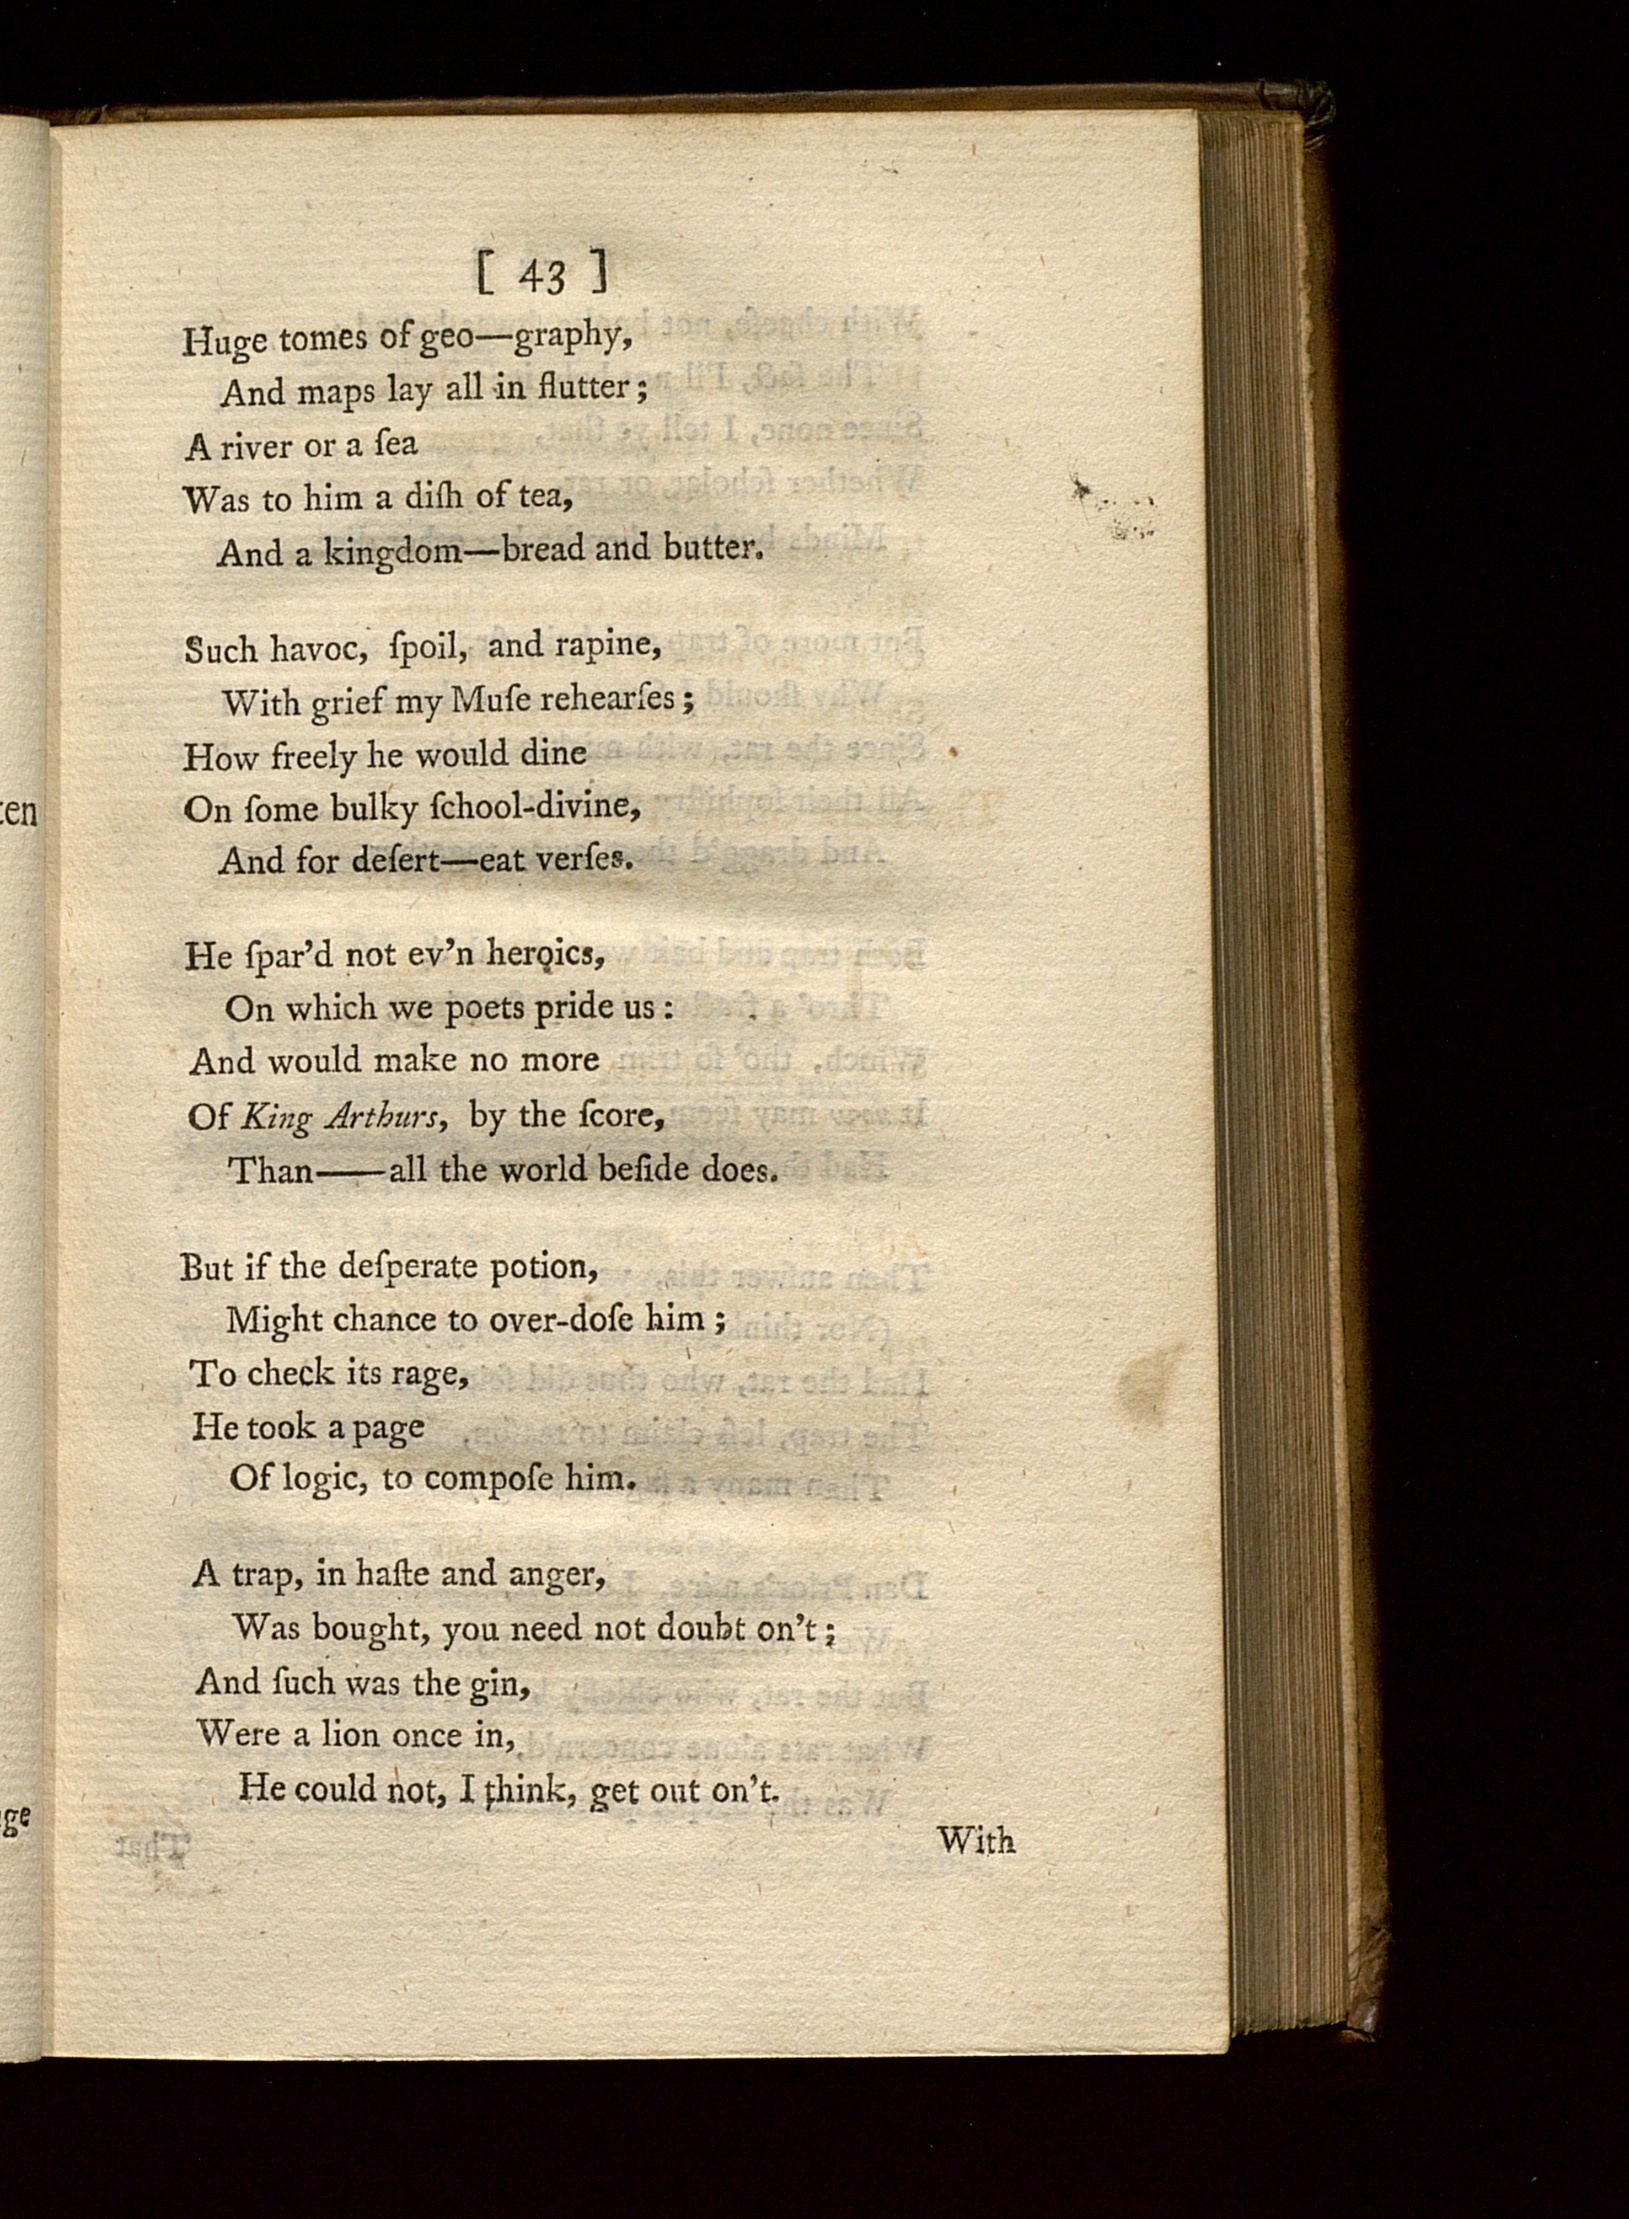 [ 43 ]
Huge tomes of geo—graphy,
And maps lay all in flutter;
A river or a ſea
Was to him a diſh of tea,
And a kingdom—bread and butter.
Such havoc, ſpoil, and rapine,
With grief my Muſe rehearſes;
How freely he would dine
On ſome bulky ſchool-divine,
And for deſert—eat verſes.
He ſpar'd not ev'n heroics,
On which we poets pride us:
And would make no more
Of King Arthurs, by the ſcore,
Than——all the world beſide does.
But if the deſperate potion,
Might chance to over-doſe him;
To check its rage,
He took a page
Of logic, to compoſe him.
A trap, in haſte and anger,
Was bought, you need not doubt on't;
And ſuch was the gin,
Were a lion once in,
He could not, I think, get out on't.
With